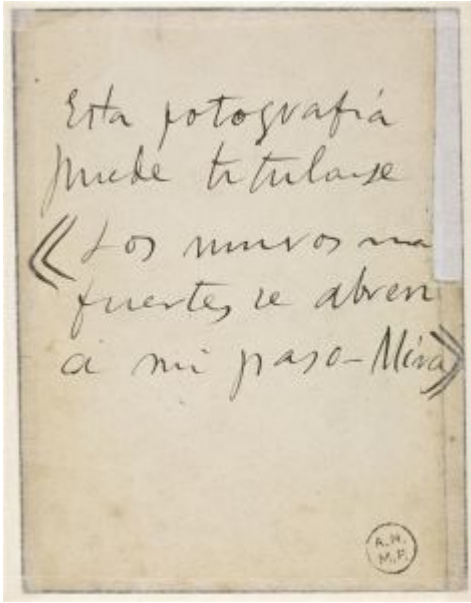 Esta fotografía
puede titularse
«Los muros má
fuertes se abren
a mi paso - Mira»
A. M.
M. P.